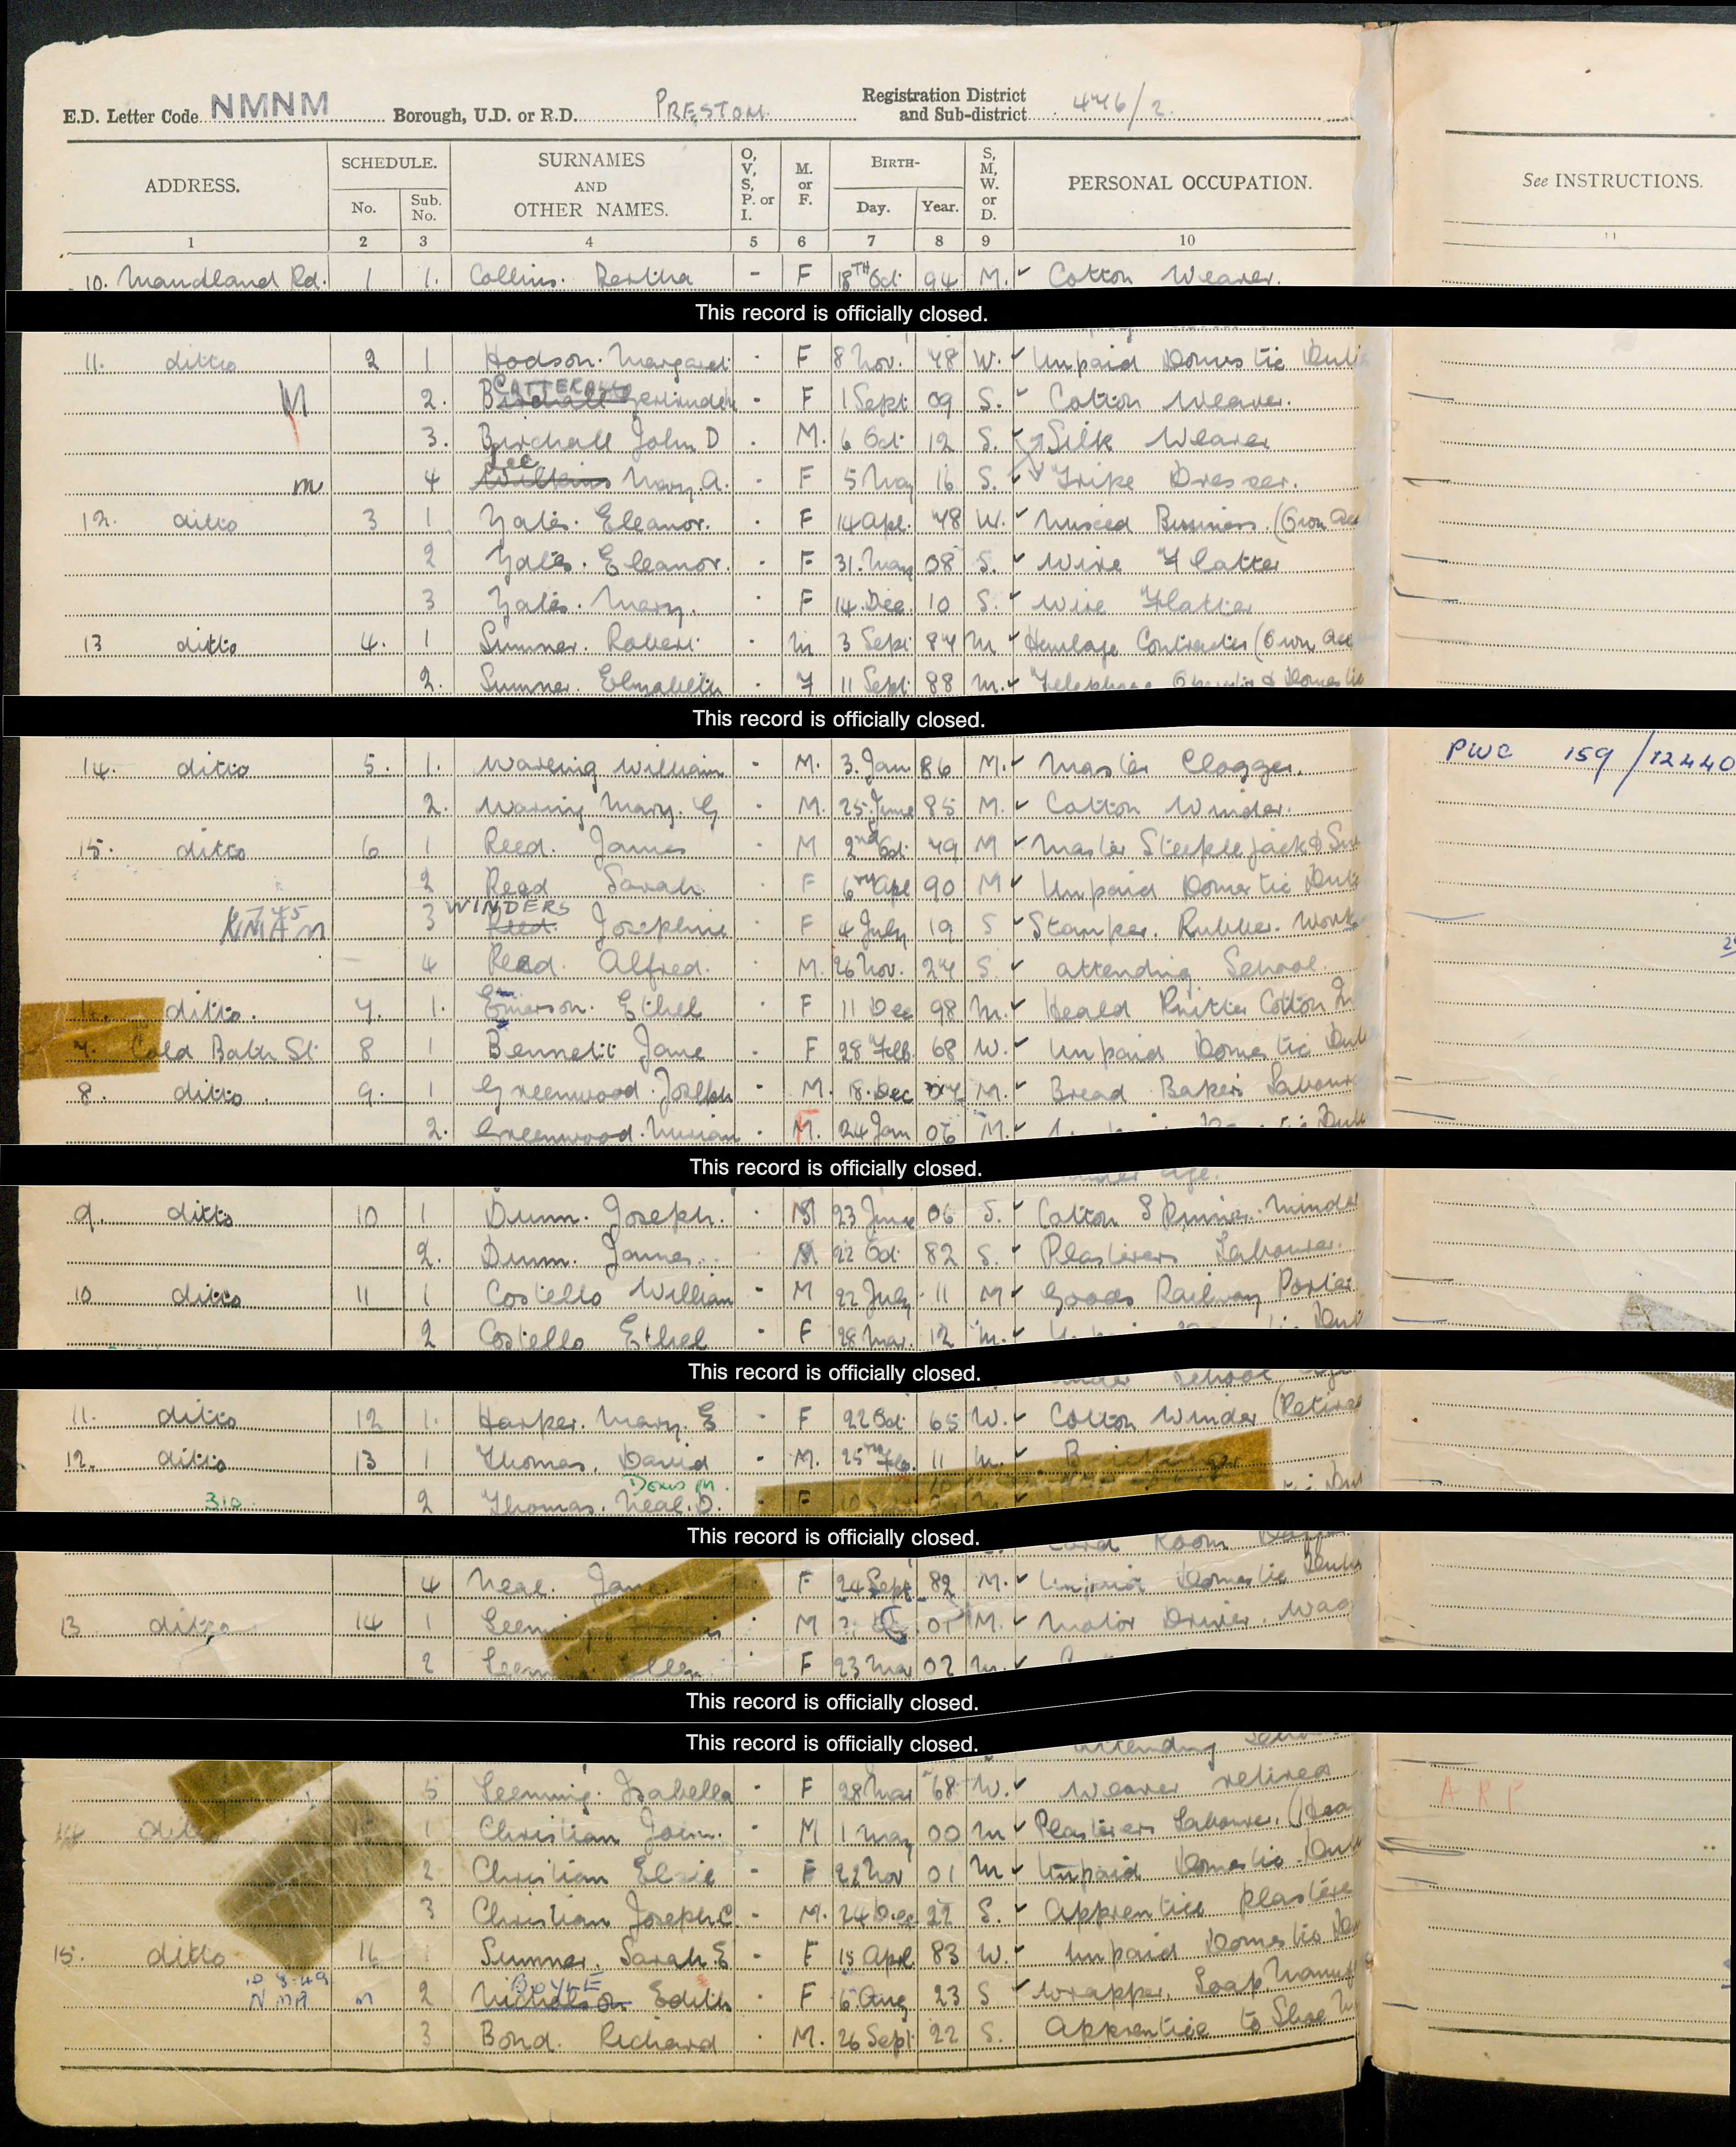 E.D. Letter Code NMNM Borough, U.D. or R.D. PRESTON Registration District and Sub-district 476/2
ADDRESS. SCHEDULE. No. Sub. No. SURNAMES AND OTHER NAMES. O, V, S, P. or I. M. or F. BIRTH- Day. Year. S, M, W. or D. PERSONAL OCCUPATION. See INSTRUCTIONS.
1 2 3 4 5 6 7 8 9 10 11
10. Maudland Rd. 1 1. Collins. Bertha - F 18TH Oct 94 M. Cotton Weaver.
This record is officially closed.
11. ditto 2 1 Hodson. Margaret - F 8 Nov. 78 W. Unpaid Domestic
CATTERALL
M 2. Birchall Gertrude - F 1 Sept 09 S. Cotton Weaver.
3. Birchall John D - M. 6 Oct 12 S. Silk Weaver
Lee
m 4 Mary. A. - F 5 May 16 S. Tripe Dresser.
12. ditto 3 1 Yates. Eleanor. - F 14 Apl. 78 W. Business. (Own
2 Yates. Eleanor. - F 31. May 08 S. Wire Flatter
3 Yates. Mary. - F 14 Dec 10 S. Wire Flatter
13 ditto 4. 1 Sumner. Robert - M 3 Sept 87 M Haulage Contractor (Own
2. Sumner. Elizabeth - F 11 Sept 88 M. Telephone
This record is officially closed.
14. ditto 5. 1. Waring William - M. 3. Jan 86 M. Master Clogger. PWC 159/12440
2. Waring Mary. G - M. 25 June 85 M. Cotton Winder.
15. ditto 6 1 Reed. James M 2nd Oct 79 M Master Steeplejack &
2 Reed Sarah F 6TH Apl 90 M Unpaid Domestic
WINDERS
3 Reed. Josephine F 4 July 19 S Stamper. Rubber. Work
4 Reed. Alfred. M. 26 Nov. 27 S. attending School.
ditto. 7. 1. Emerson. Ethel F 11 Dec 98 M. Heald Knitter Cotton
7. Cold Bath St 8 1 Bennett Jane F 28 Feb. 68 W. Unpaid Domestic
8. ditto. 9. 1 Greenwood. Joseph - M. 18. Dec M. Bread Bakers Labourer
2. Greenwood. - M. F 24 Jan 06 M.
This record is officially closed.
under age.
9. ditto 10 1 Dunn. Joseph. - M 23 June 06 S. Cotton Spinner. Minder
2. Dunn. James. - M 22 Oct 82 S. Plasterers Labourer.
10 ditto 11 1 Costello William - M 22 July 11 M Goods Railway Porter
2 Costello Ethel - F 28 Mar. 12 M.
This record is officially closed.
under school age
11. ditto 12 1. Harper. Mary. E - F 22 Oct 65 W. Cotton Winder (Retired
12. ditto 13 1 Thomas. David - M. 25TH Feb. 11 M.
310. 2 Thomas. Neal. D. F
This record is officially closed.
Card Room
4 Neal. Jane F 24 Sept 82 M. Unpaid Domestic
13 ditto 14 1 M M. Motor Driver.
2 F 23 Mar 02 M.
This record is officially closed.
This record is officially closed.
attending
5 Leeming. Isabella - F 28 Mar 68 W. Weaver retired A R P
1 Christian John. - M 1 May 00 M Plasterers Labourer. (Hea
2 Christian Elsie - F 22 Nov 01 M Unpaid Domestic
3 Christian Joseph. C - M. 24 Dec 22 S. Apprentice Plasterer
15. ditto 16 Sumner. Sarah. E - F 15 Apl 83 W. Unpaid Domestic
BOYLE
m 2 Nicholson Edith - F 6 Aug 23 S Wrapper. Soap
3 Bond. Richard - M. 26 Sept 22 S. Apprentice to Shoe